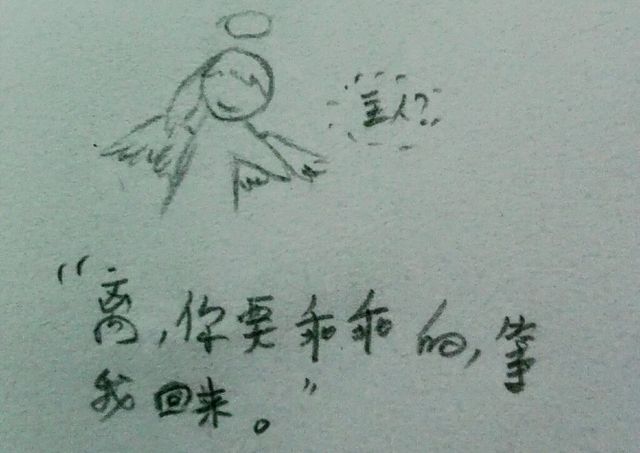 主人?
“离,你要乖乖的,等
我回来。”